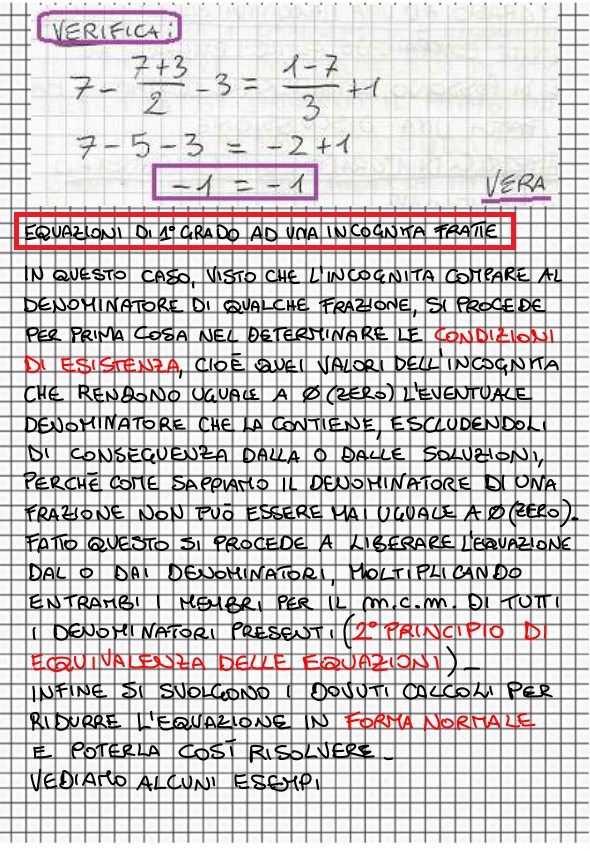 VERIFICA:
7 - \frac{7+3}{2} - 3 = \frac{1-7}{3} + 1
7 - 5 - 3 = -2 + 1
-1 = -1 VERA
EQUAZIONI DI 1° GRADO AD UNA INCOGNITA FRATTE
IN QUESTO CASO, VISTO CHE L'INCOGNITA COMPARE AL
DENOMINATORE DI QUALCHE FRAZIONE, SI PROCEDE
PER PRIMA COSA NEL DETERMINARE LE CONDIZIONI
DI ESISTENZA, CIOÈ QUEI VALORI DELL'INCOGNITA
CHE RENDONO UGUALE A Ø (ZERO) L'EVENTUALE
DENOMINATORE CHE LA CONTIENE, ESCLUDENDOLI
DI CONSEGUENZA DALLA O DALLE SOLUZIONI,
PERCHÈ COME SAPPIAMO IL DENOMINATORE DI UNA
FRAZIONE NON PUÒ ESSERE MAI UGUALE A Ø (ZERO).
FATTO QUESTO SI PROCEDE A LIBERARE L'EQUAZIONE
DAL O DAI DENOMINATORI, MOLTIPLICANDO
ENTRAMBI I MEMBRI PER IL m.c.m. DI TUTTI
I DENOMINATORI PRESENTI (2° PRINCIPIO DI
EQUIVALENZA DELLE EQUAZIONI) -
INFINE SI SVOLGONO I DOVUTI CALCOLI PER
RIDURRE L'EQUAZIONE IN FORMA NORMALE
E POTERLA COSÌ RISOLVERE -
VEDIAMO ALCUNI ESEMPI